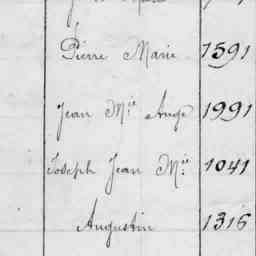 Pierre Marie 1591
Jean M.ie Ange 1991
Joseph Jean M.ie 1041
Augustin 1316